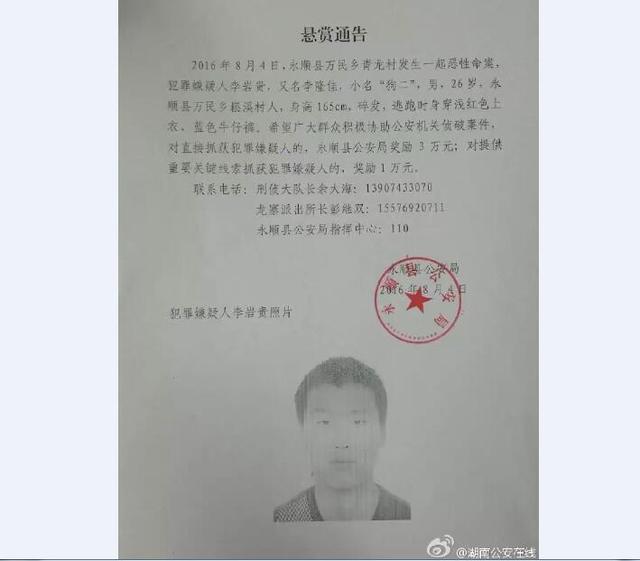 悬赏通告
2016年8月4日,永顺县万民乡青龙村发生一起恶性命案,
犯罪嫌疑人李岩贵,又名李隆佳,小名“狗二”,男,26岁,永
顺县万民乡 溪村人,身高165cm,碎发,逃跑时身穿浅红色上
衣、蓝色牛仔裤。希望广大群众积极协助公安机关侦破案件,
对直接抓获犯罪嫌疑人的,永顺县公安局奖励3万元;对提供
重要关键线索抓获犯罪嫌疑人的,奖励1万元。
联系电话:刑侦大队长余大海:13907433070
龙寨派出所长彭继双:15576920711
永顺县公安局指挥中心:110
永顺县公安局
2016年8月4日
永顺县公安局
犯罪嫌疑人李岩贵照片
@湖南公安在线